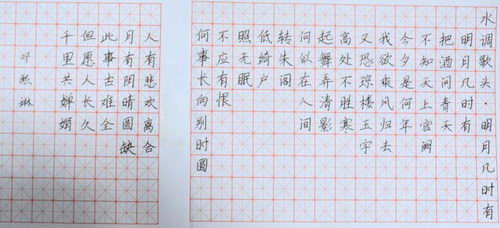 水调歌头·明月几时有
明月几时有
把酒问青天
不知天上宫阙
今夕是何年
我欲乘风归去
又恐琼楼玉宇
高处不胜寒
起舞弄清影
何似在人间
转朱阁
低绮户
照无眠
不应有恨
何事长向别时圆
人有悲欢离合
月有阴晴圆缺
此事古难全
但愿人长久
千里共婵娟
琳